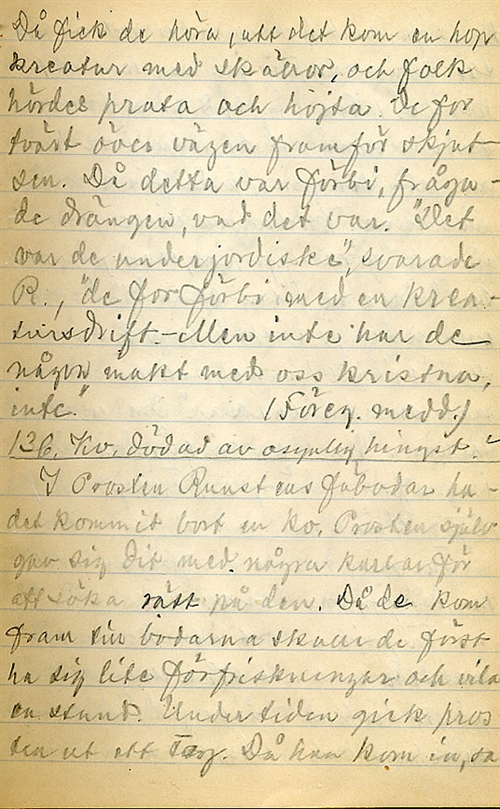 Då fick de höra, att det kom en hop
kreatur med skällror, och folk
hördes prata och hojta. De for
tvärt över vägen framför skjut-
sen. Då detta var förbi, fråga-
de drängen, vad det var. "Det
var de underjordiske", svarade
R., "de for förbi med en krea-
tursdrift. - Men inte har de
någon makt med oss kristna,
inte." (Föreg. medd.)
136. Ko, dödad av osynlig hingst.
I Prosten Runstens fäbodar ha-
det kommit bort en ko. Prosten själv
gav sig dit med några karlar för
att söka rätt på den. Då de kom
fram till bodarna skulle de först
ha sig lite förfriskningar och vila
en stund. Under tiden gick pros
ten ut ett tag. Då han kom in, sa